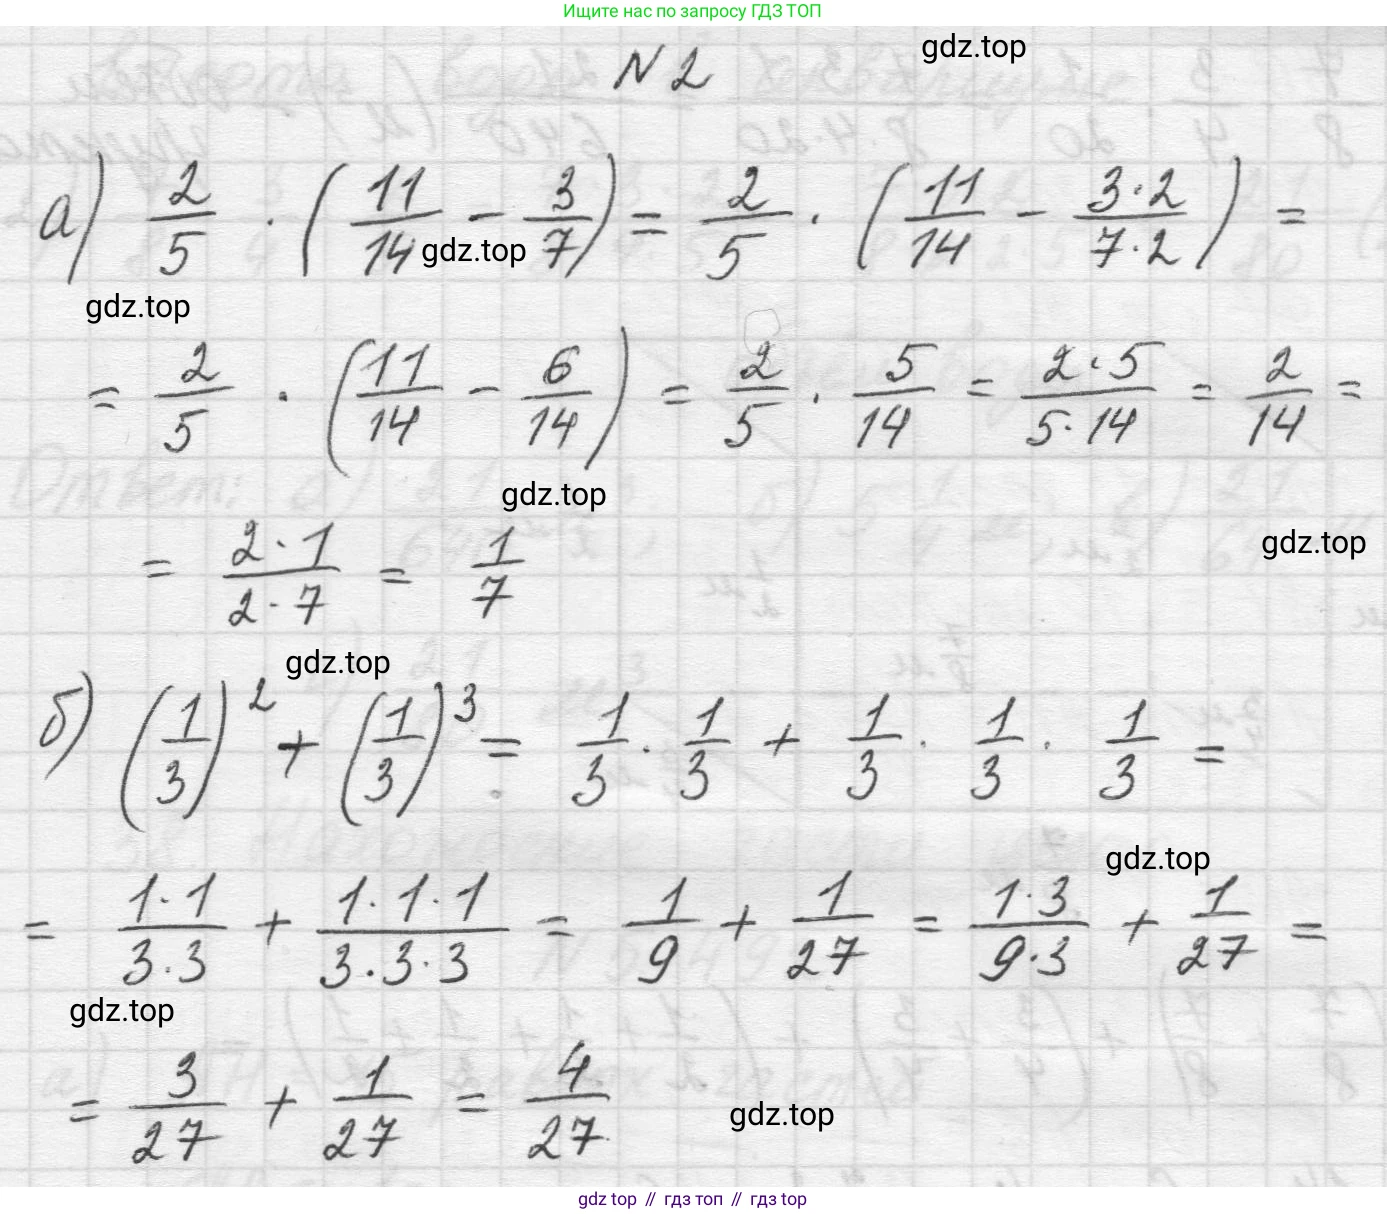 Ищите нас по запросу ГДЗ ТОП
N 2
gdz.top
а) 2/5 · (11/14 - 3/7) = 2/5 · (11/14 - 3·2/7·2) =
gdz.top
gdz.top
= 2/5 · (11/14 - 6/14) = 2/5 · 5/14 = 2·5/5·14 = 2/14 =
gdz.top
gdz.top
= 2·1/2·7 = 1/7
gdz.top
б) (1/3)² + (1/3)³ = 1/3 · 1/3 + 1/3 · 1/3 · 1/3 =
gdz.top
= 1·1/3·3 + 1·1·1/3·3·3 = 1/9 + 1/27 = 1·3/9·3 + 1/27 =
gdz.top
= 3/27 + 1/27 = 4/27
gdz.top
gdz top // гдз топ // gdz top